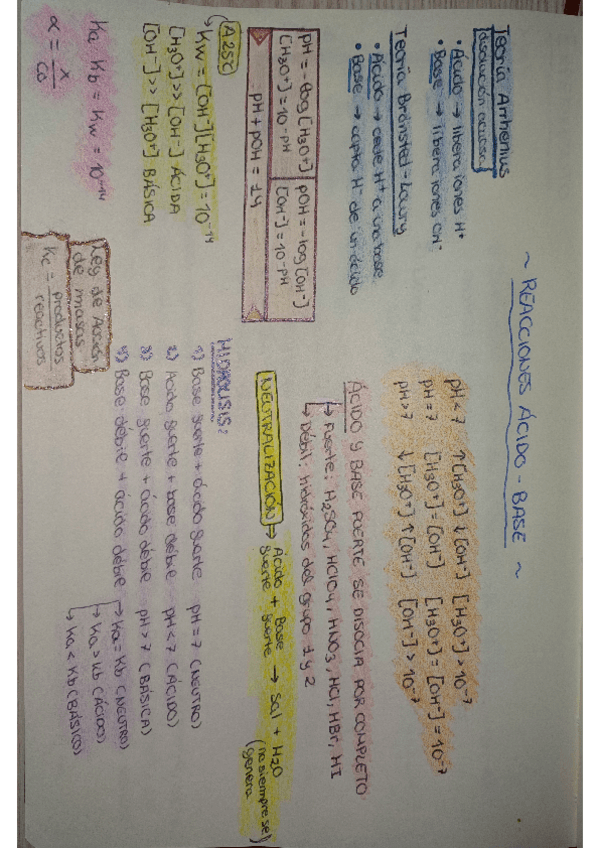 ~ REACCIONES ÁCIDO - BASE ~
Teoría Arrhenius
(disolución acuosa)
• Ácido → libera iones H⁺
• Base → libera iones OH⁻
Teoría Brönsted-Lowry
• Ácido → cede H⁺ a una base
• Base → capta H⁻ de un ácido
pH = -log[H₃O⁺]
[H₃O⁺] = 10⁻ᵖᴴ
pOH = -log[OH⁻]
[OH⁻] = 10⁻ᵖᴴ
pH + pOH = 14
A 25ºC
Kw = [OH⁻][H₃O⁺] = 10⁻¹⁴
[H₃O⁺] >> [OH⁻] ÁCIDA
[OH⁻] >> [H₃O⁺] BÁSICA
Ka · Kb = Kw = 10⁻¹⁴
α = x / Co
Ley de Acción
de masas
Kc = productos / reactivos
pH < 7 ↑[H₃O⁺] ↓[OH⁻] [H₃O⁺] > 10⁻⁷
pH = 7 [H₃O⁺] = [OH⁻] [H₃O⁺] = [OH⁻] = 10⁻⁷
pH > 7 ↓[H₃O⁺] ↑[OH⁻] [OH⁻] > 10⁻⁷
ÁCIDO Y BASE FUERTE SE DISOCIA POR COMPLETO
↳ Fuerte: H₂SO₄, HClO₄, HNO₃, HCl, HBr, HI
↳ Débil: hidróxidos del grupo 1 y 2
NEUTRALIZACIÓN → Ácido fuerte + Base fuerte → Sal + H₂O
(no siempre se genera
HIDRÓLISIS:
1) Base fuerte + ácido fuerte pH = 7 (NEUTRO)
2) Ácido fuerte + base débil pH < 7 (ÁCIDO)
3) Base fuerte + ácido débil pH > 7 (BÁSICA)
4) Base débil + ácido débil → Ka = Kb (NEUTRO)
→ Ka > Kb (ÁCIDO)
→ Ka < Kb (BÁSICO)